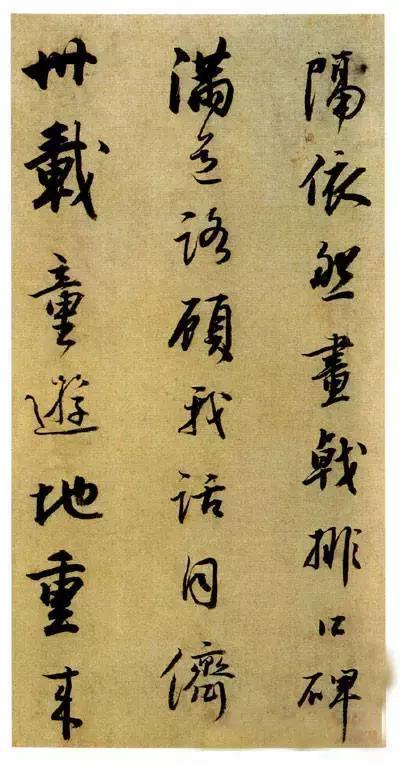 隔依然畫戟排口碑
滿道路顧我話同儕
卅載童遊地重來